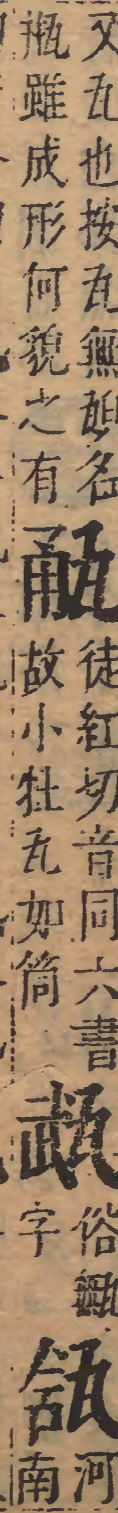 又瓦也按瓦無名
瓶雖成形何貌之有
㼧
徒紅切音同六書
故小牡瓦如筒
俗甒
字
河
南